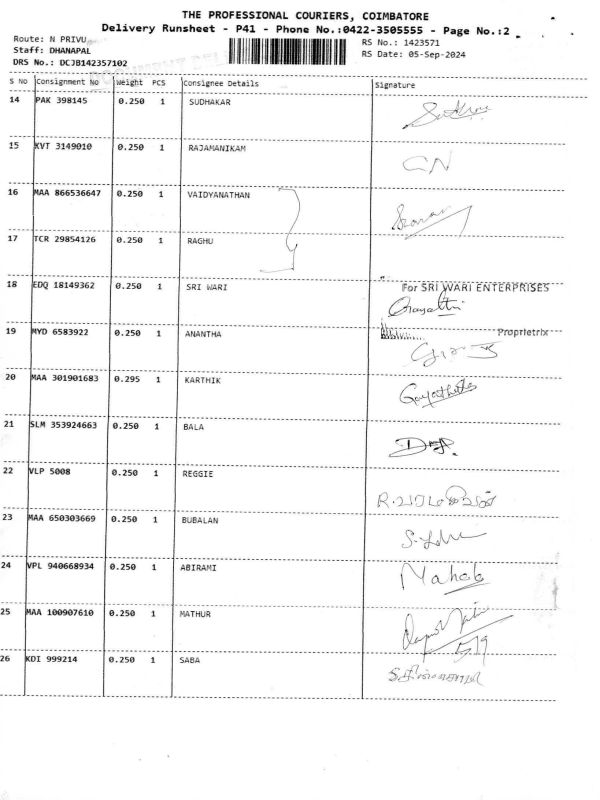 THE PROFESSIONAL COURIERS, COIMBATORE
Delivery Runsheet - P41 - Phone No.:0422-3505555 - Page No.:2
Route: N PRIVU
RS No.: 1423571
Staff: DHANAPAL
RS Date: 05-Sep-2024
DRS No.: DCJB142357102
S No Consignment No Weight PCS Consignee Details Signature
14 PAK 398145 0.250 1 SUDHAKAR
15 KVT 3149010 0.250 1 RAJAMANIKAM GN
16 MAA 866536647 0.250 1 VAIDYANATHAN
17 TCR 29854126 0.250 1 RAGHU
18 EDQ 18149362 0.250 1 SRI WARI For SRI WARI ENTERPRISES
Proprietrix
19 MYD 6583922 0.250 1 ANANTHA
20 MAA 301901683 0.295 1 KARTHIK
21 SLM 353924663 0.250 1 BALA
22 VLP 5008 0.250 1 REGGIE
23 MAA 650303669 0.250 1 BUBALAN
24 VPL 940668934 0.250 1 ABIRAMI Mahob
25 MAA 100907610 0.250 1 MATHUR
5/9
26 KDI 999214 0.250 1 SABA